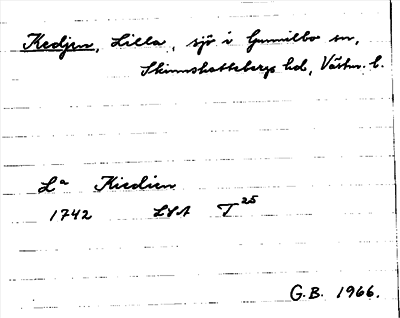 Kedjen, Lilla, sjö i Gunnilbo sn,
Skinnskattebergs hd, Västm. l.
La Kiedien
1742 LSA T25
G.B. 1966.